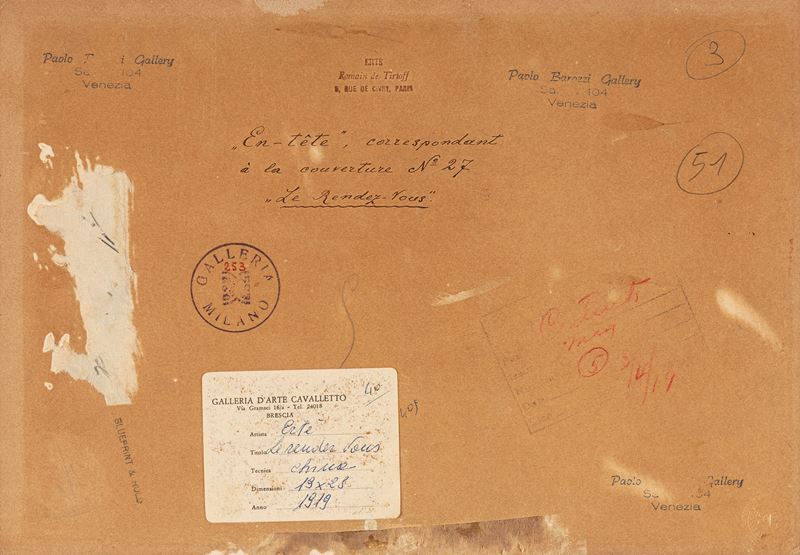 3
Paolo Gallery
104
Venezia
ERTÉ
Romain de Tirtoff
Paolo Barozzi Gallery
104
Venezia
„En-tête", correspondant
à la couverture № 27
„Le Rendez-Vous".
51
GALLERIA
253
MILANO
5
3/4/19
GALLERIA D'ARTE CAVALLETTO
Via Gramsci 16/a - Tel. 24018
BRESCIA
40
Artista Erté
Titolo Le rendez Vous
Tecnica china
Dimensioni 19x28
Anno 1919
409
BLUEPRINT & HOLD
Paolo Gallery
Venezia